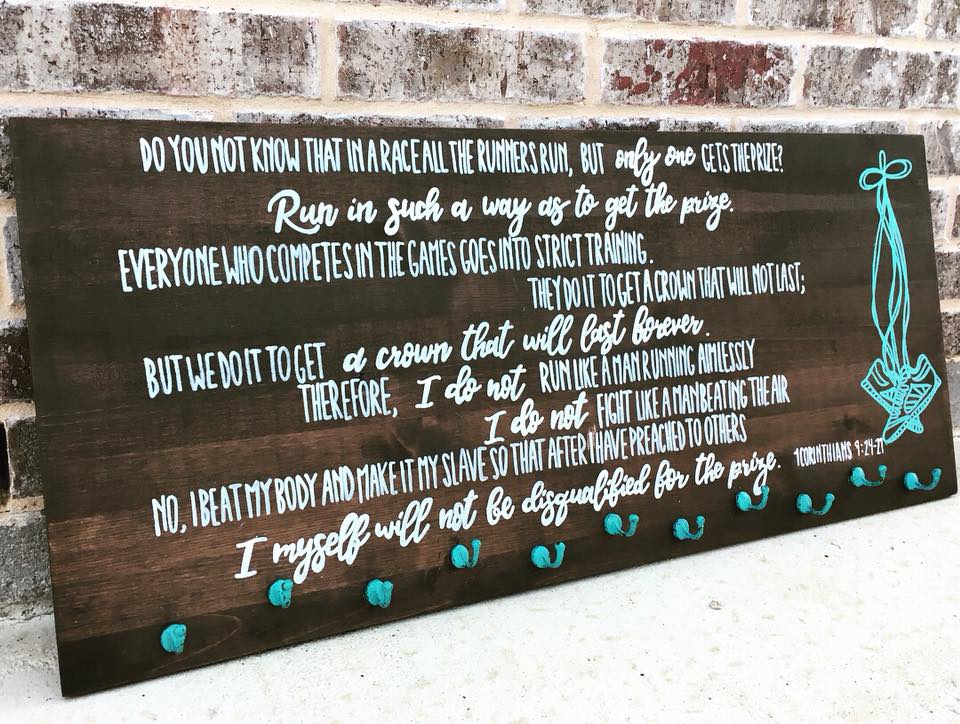 DO YOU NOT KNOW THAT IN A RACE ALL THE RUNNERS RUN, BUT only one GETS THE PRIZE?
Run in such a way as to get the prize.
EVERYONE WHO COMPETES IN THE GAMES GOES INTO STRICT TRAINING.
THEY DO IT TO GET A CROWN THAT WILL NOT LAST;
BUT WE DO IT TO GET a crown that will last forever.
THEREFORE, I do not RUN LIKE A MAN RUNNING AIMLESSLY
I do not FIGHT LIKE A MAN BEATING THE AIR
NO, I BEAT MY BODY AND MAKE IT MY SLAVE SO THAT AFTER I HAVE PREACHED TO OTHERS
I myself will not be disqualified for the prize.
1 CORINTHIANS 9:24-27